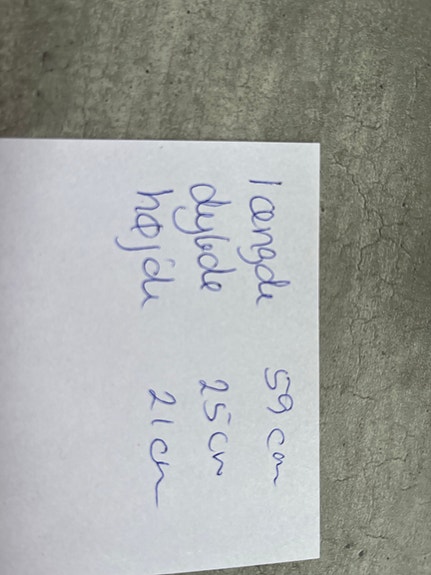 længde 59 cm
dybde 25 cm
højde 21 cm